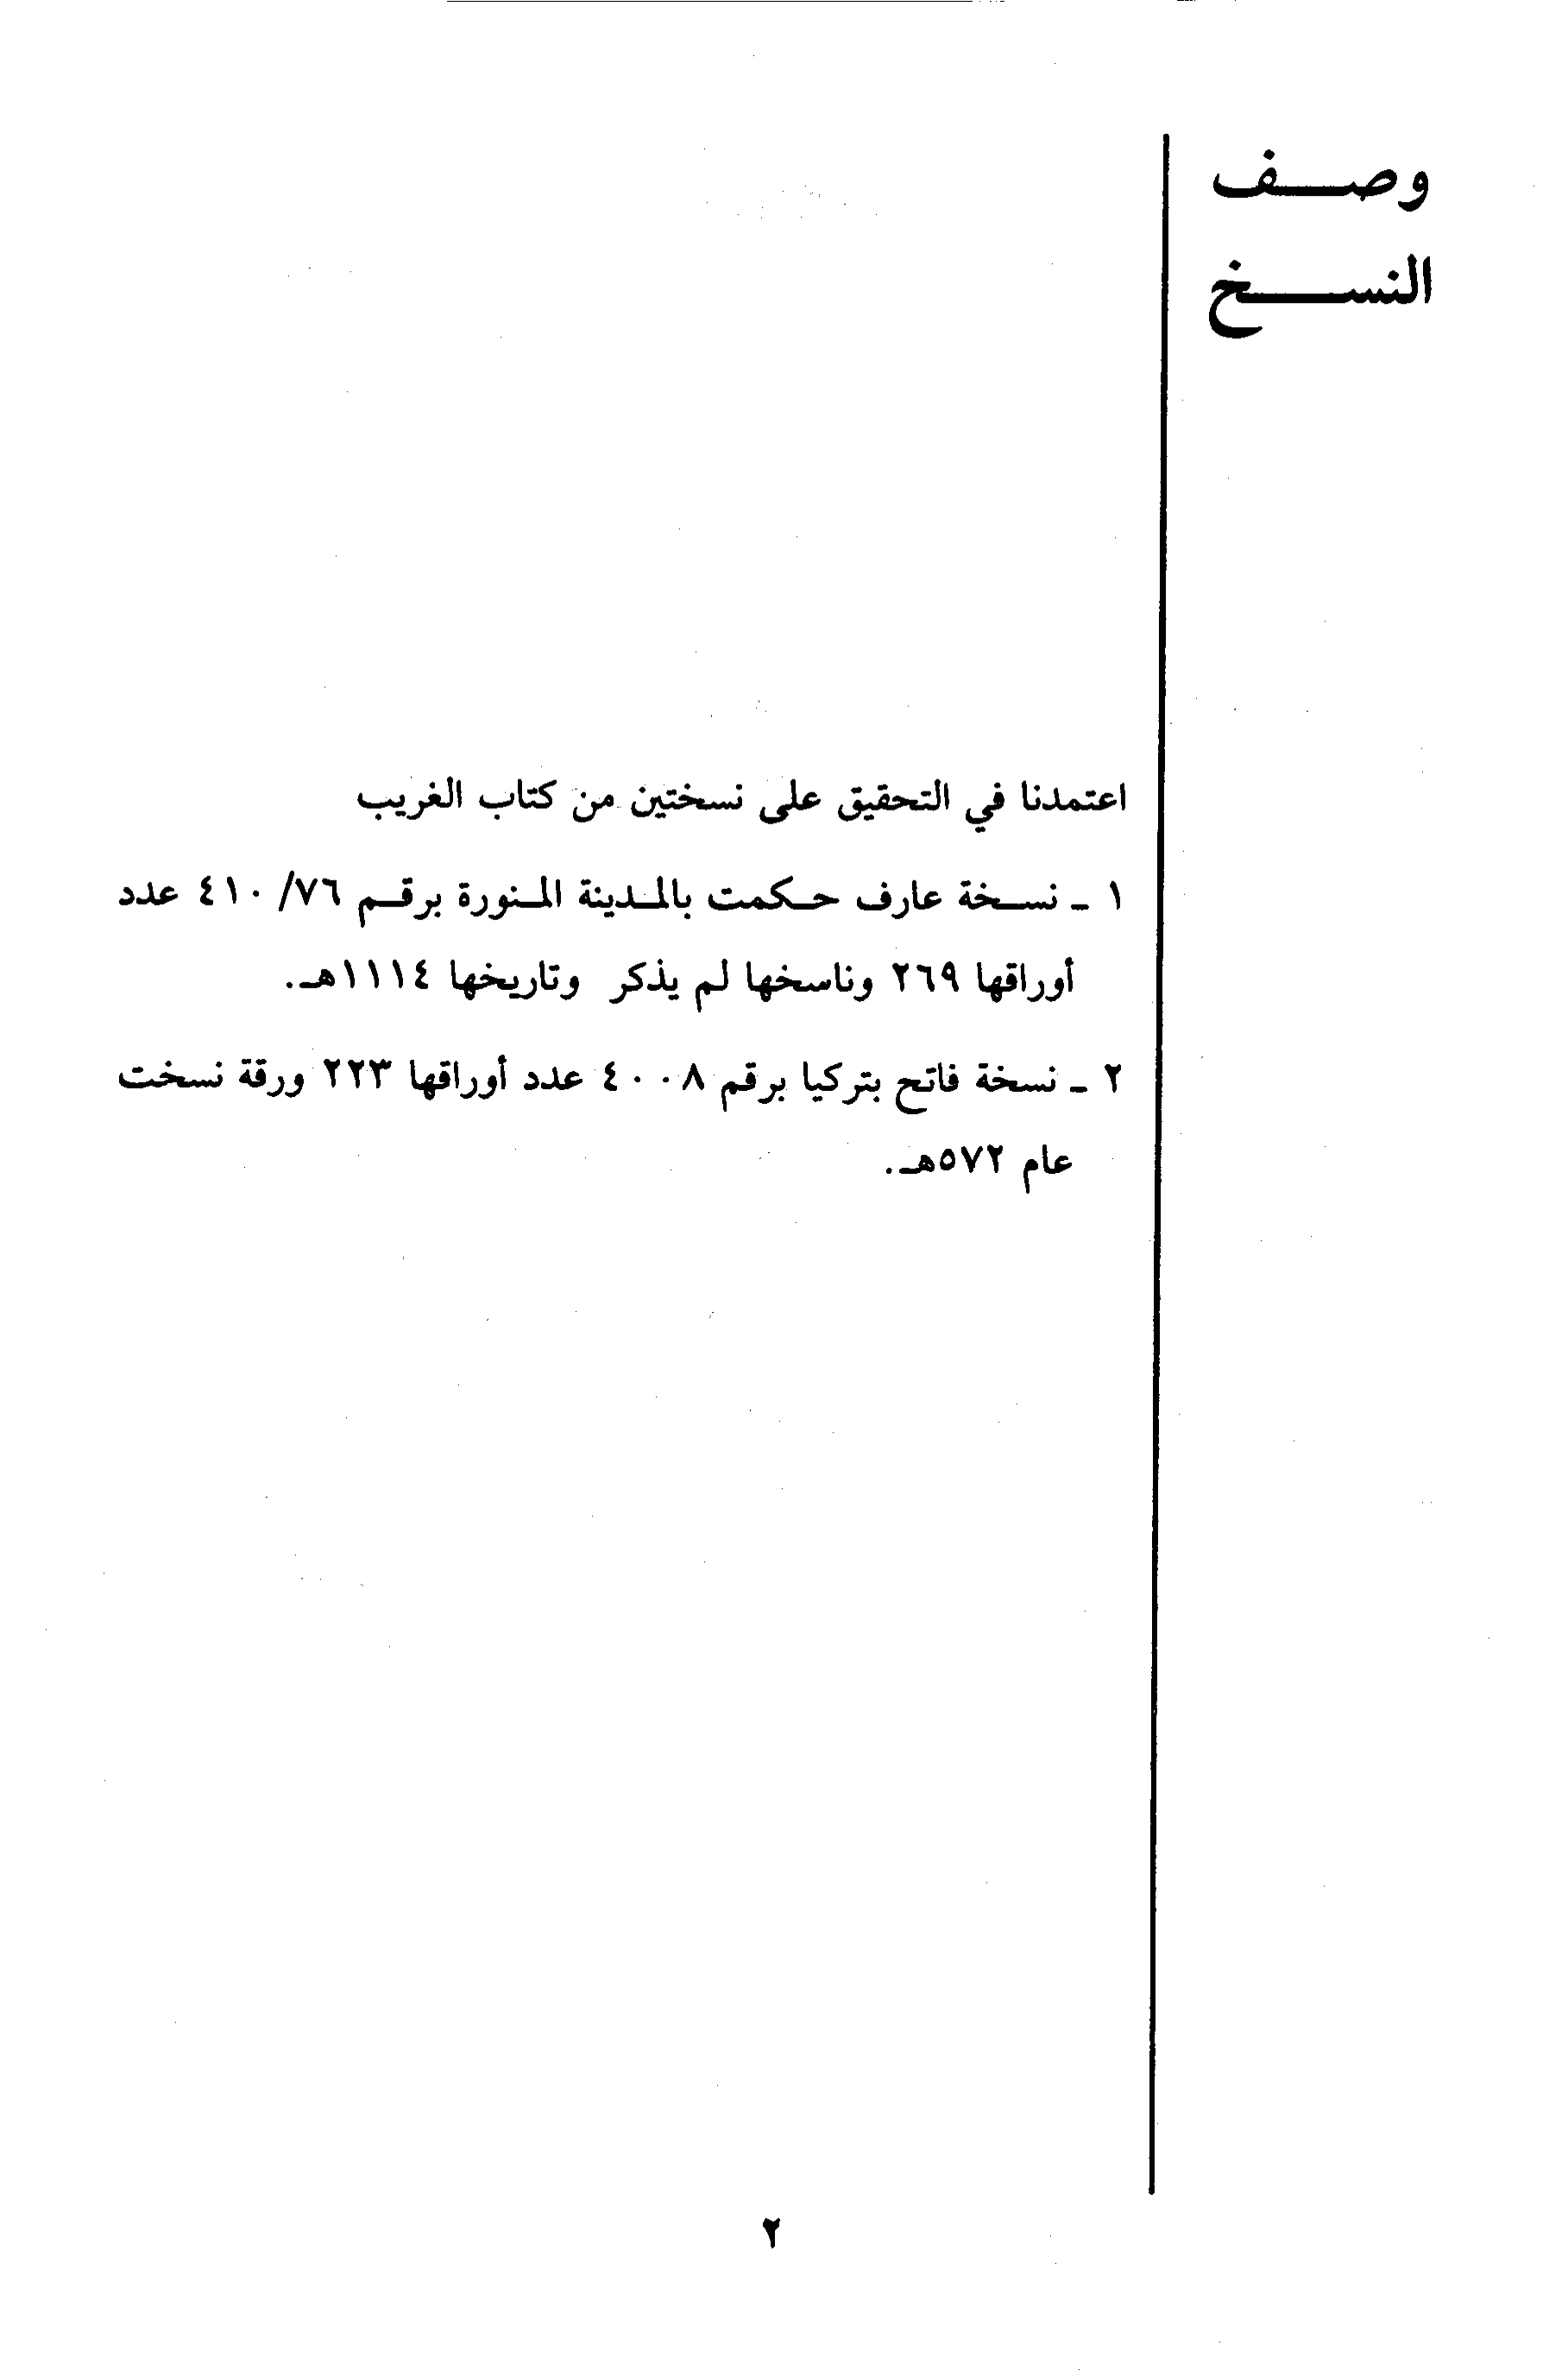 وصف
النسخ
اعتمدنا في التحقيق على نسختين من كتاب الغريب
١ - نسخة عارف حكمت بالمدينة المنورة برقم ٧٦/ ٤١٠ عدد
أوراقها ٢٦٩ وناسخها لم يذكر وتاريخها ١١١٤هـ.
٢ - نسخة فاتح بتركيا برقم ٤٠٠٨ عدد أوراقها ٢٢٣ ورقة نسخت
عام ٥٧٢هـ.
٢